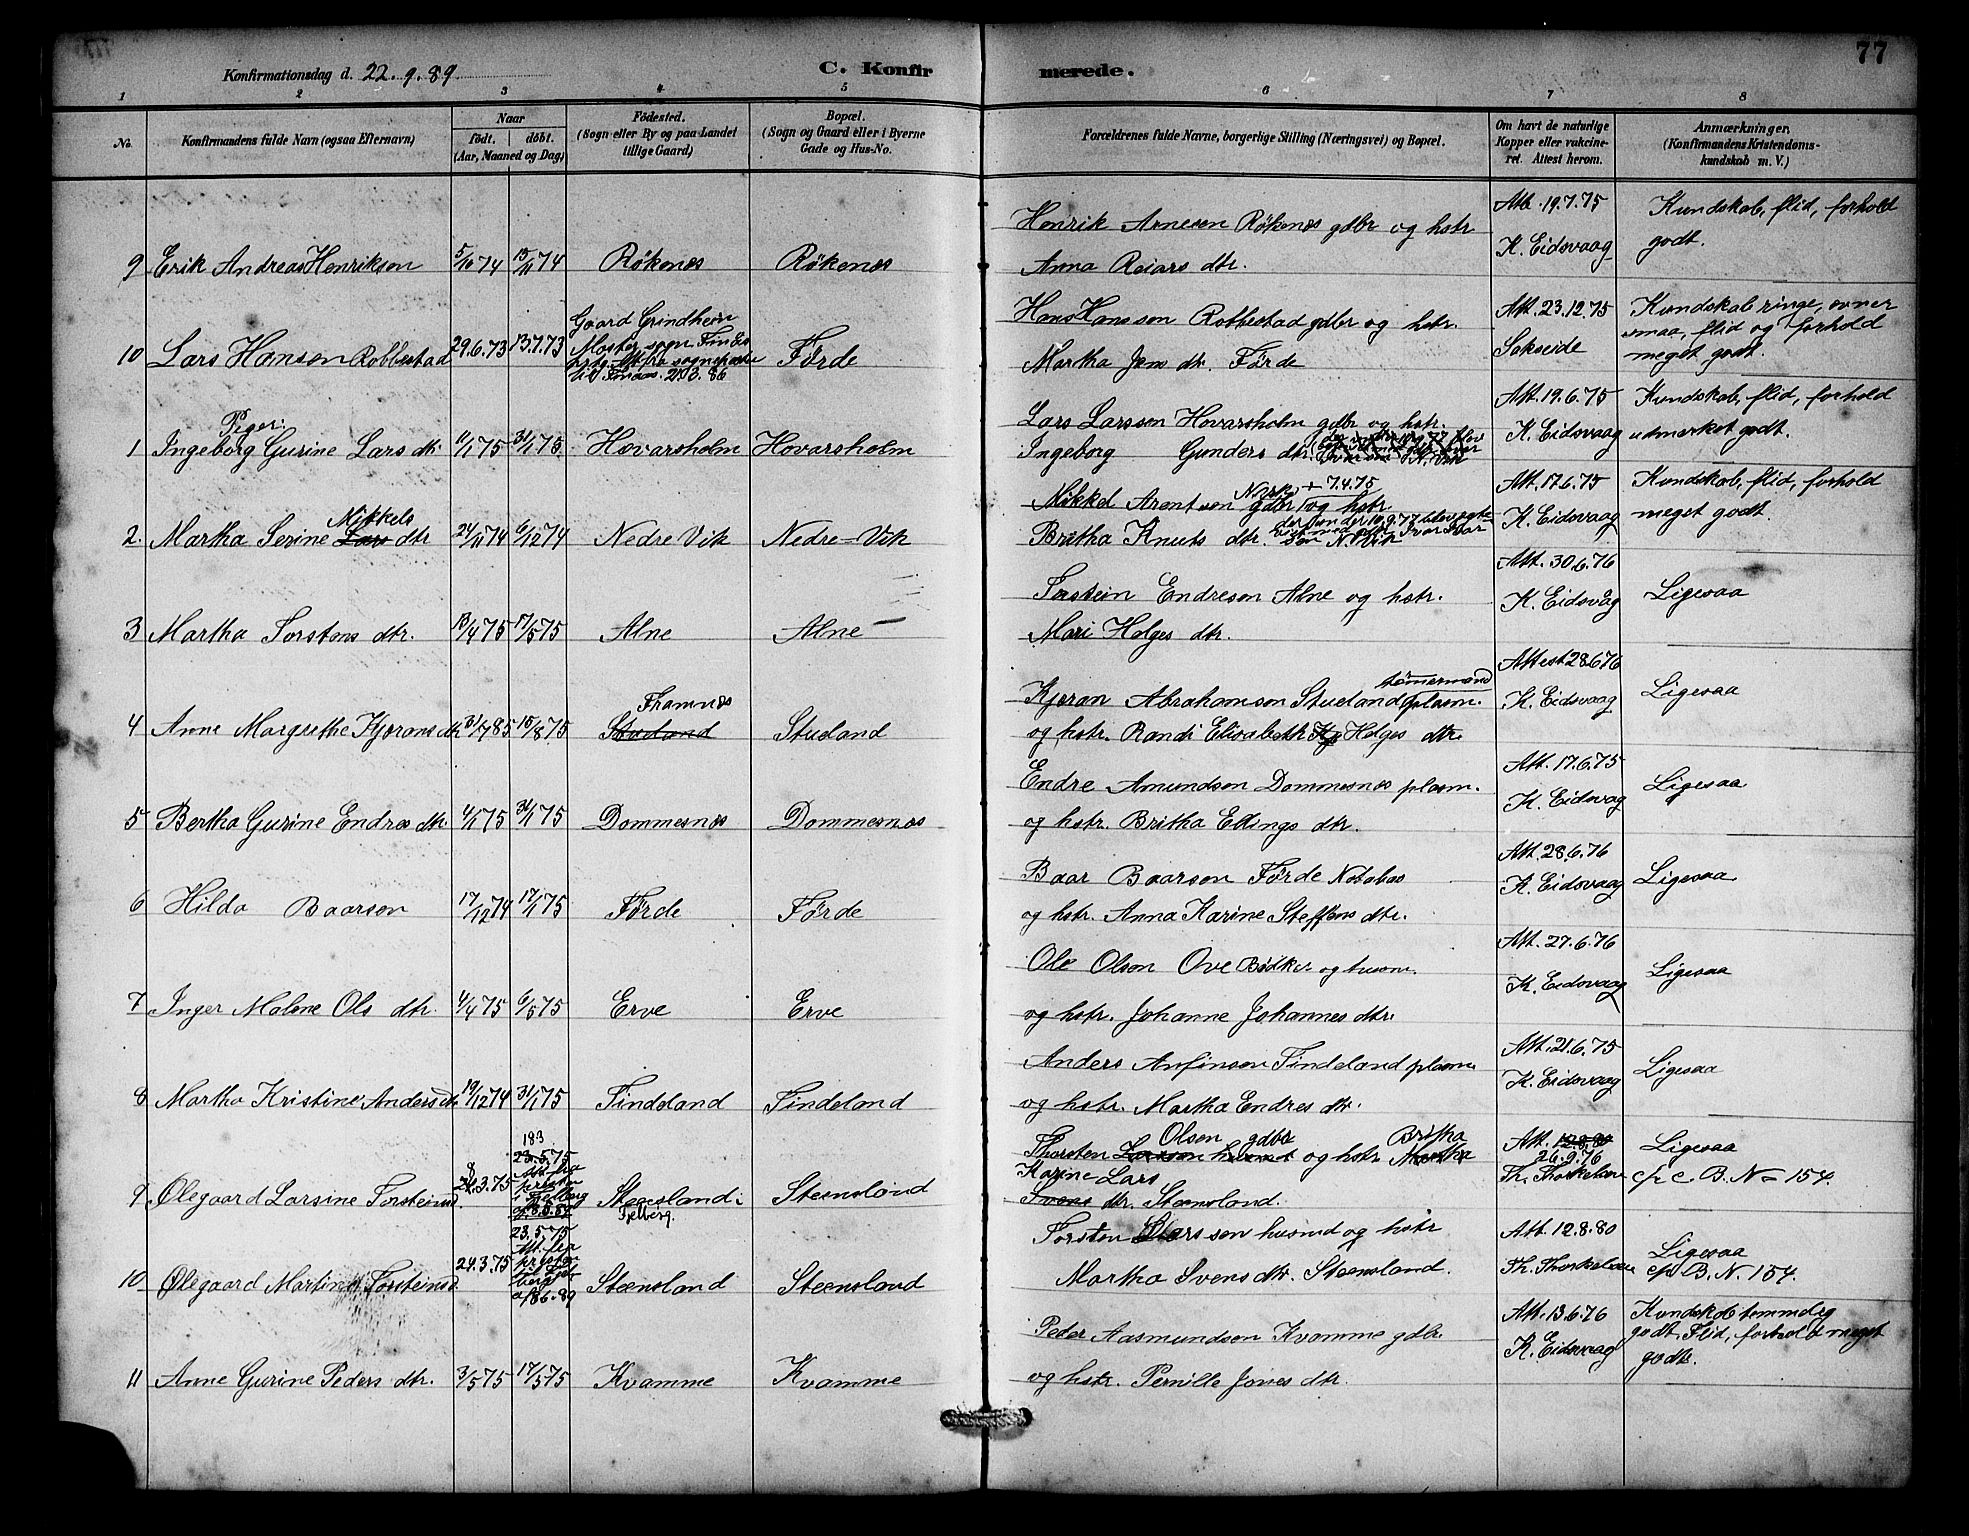 77
Konfirmationsdag d. 22.9.89. C. Konfirmerede.
1 2 3 4 5 6 7 8
No. Konfirmandens fulde Navn (ogsaa Efternavn) Naar født. døbt. (Aar, Maaned og Dag) Födested. (Sogn eller By og paa Landet tillige Gaard) Bopæl. (Sogn og Gaard eller i Byerne Gade og Hus-No. Forældrenes fulde Navne, borgerlige Stilling (Næringsvei) og Bopæl. Om havt de naturlige Kopper eller vakcineret. Attest herom. Anmærkninger. (Konfirmandens Kristendomskundskab m. V.)
Henrik Arnesen Røkenes gdbr og hstr Att. 19.7.75 Kundskab, flid, forhold
9 Erik Andreas Henriksen 5/10 74 15/11 74 Røkenes Røkenes Anna Reiars dtr. K. Eidsvaag godt.
Gaard Grindheim Hans Hansson Robbestad gdbr og hstr. Att. 23.12.75 Kundskab ringe, evner
10 Lars Hansen Robbestad 29.6.73 13.7.73 Moster sogn Førde Martha Jens dtr. Førde Sakseide smaa, flid og forhold
meget godt.
Piger: Lars Larsson Hovarsholm gdbr og hstr. Att. 19.6.75 Kundskab, flid, forhold
1 Ingeborg Gurine Lars dtr. 11/1 75 31/1 75 Hovarsholm Hovarsholm Ingeborg Gunders dtr. K. Eidsvaag udmerket godt.
Mikkels Mikkel Arentsen Norske gdbr + 7.4.75 og hstr Att. 17.6.75 Kundskab, flid, forhold
2. Martha Serine Lars dtr 24/11 74 6/12 74 Nedre Vik Nedre-Vik Britha Knuts dtr. K. Eidsvaag meget godt.
Torstein Endreson Alne og hstr. Att. 30.6.76 Ligesaa
3 Martha Torstens dtr. 13/4 75 17/5 75 Alne Alne Mari Helges dtr. K. Eidsvåg
Framnes Kjøran Abrahamson Stueland tømermand plasm. Attest 28.6.76 Ligesaa
4 Anne Margrethe Kjørans dtr 31/7 85 15/8 75 Stueland Stueland og hstr. Randi Elisabeth Helges dtr. K. Eidsvaag
Endre Amundson Dommesnes plasm. Att. 17.6.75 Ligesaa
5 Bertha Gurine Endres dtr 4/1 75 31/1 75 Dommesnes Dommesnes og hstr. Britha Ellings dtr. K. Eidsvaag
Baar Baarson Førde Notabas Att. 28.6.76 Ligesaa
6 Hilda Baarson 17/12 74 17/1 75 Førde Førde og hstr. Anna Karine Steffens dtr. K. Eidsvaag
Ole Olson Ove Bødker og husm. Att. 27.6.76 Ligesaa
7 Inger Malene Ols dtr. 4/4 75 6/5 75 Erve Erve og hstr. Johanne Johannes dtr. K. Eidsvaag
Anders Anfinson Tindeland plasm Att. 21.6.75 Ligesaa
8 Martha Kristine Anders dtr 19/12 74 31/1 75 Tindeland Tindeland og hstr. Martha Endres dtr. K. Eidsvaag
183 23.5.75 Thorsten Larsson Olsen gdbr og hstr Martha Britha Att. 12.8.80 26.9.76 Ligesaa
9 Ølegaard Larsine Torsteinsd. 24.3.75 Att fra presten i Fjelberg Steensland i Fjelberg. Steensland Karine Lars Svens dtr. Steensland. Th. Thorkelsen cfr c B. N= 154.
23.5.75 Torsten Larsson husmd og hstr Att. 12.8.80 Ligesaa
10 Ølegaard Martine Torsteinsd 24.3.75 Att. fra presten Steensland Steensland Martha Svens dtr. Steensland. Th. Thorkelsen cfr B. N. 154.
Peder Aasmundson Kvamme gdbr. Att. 13.6.76 Kundskab temmelig
11 Anne Gurine Peders dtr. 3/5 75 17/5 75 Kvamme Kvamme og hstr. Pernille Jones dtr. K. Eidsvaag godt, Flid, forhold meget godt.